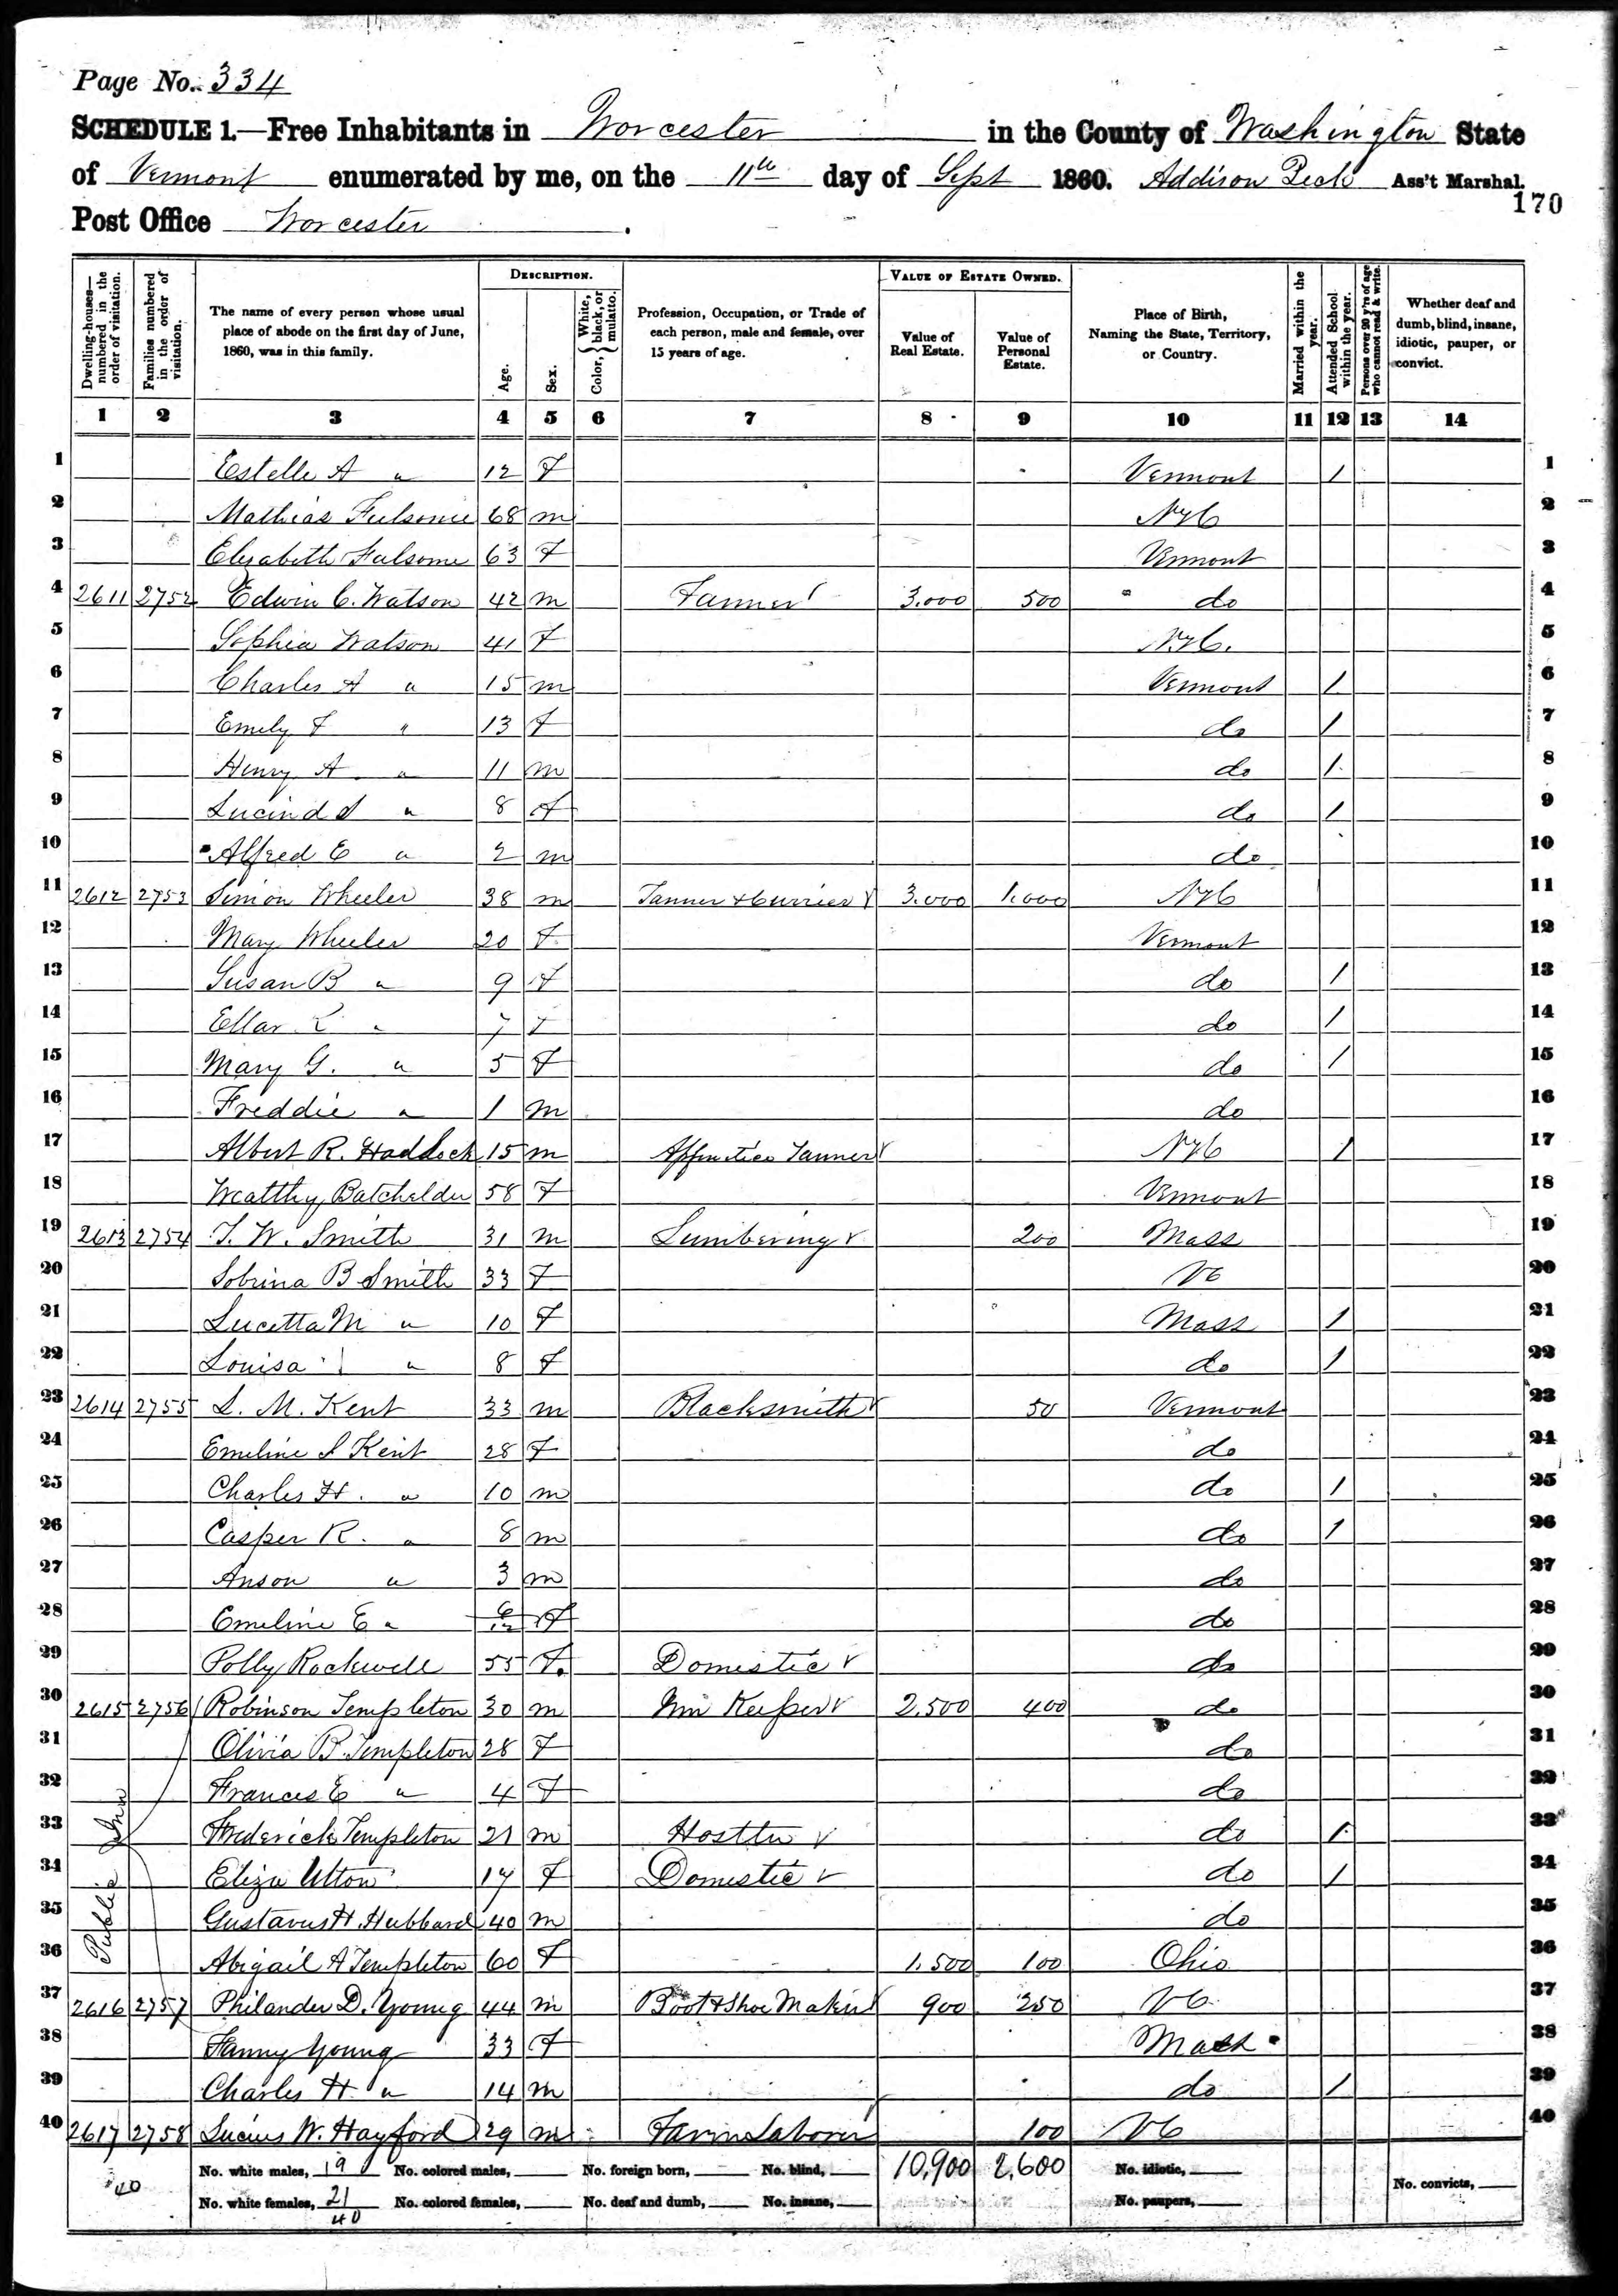 Page No. 334
SCHEDULE 1.—Free Inhabitants in Worcester in the County of Washington State
of Vermont enumerated by me, on the 11th day of Sept 1860. Addison Peck Ass't Marshal.
170
Post Office Worcester.
Dwelling-houses—numbered in the order of visitation.
Families numbered in the order of visitation.
The name of every person whose usual place of abode on the first day of June, 1860, was in this family.
DESCRIPTION.
Age.
Sex.
Color, White, black, or mulatto.
Profession, Occupation, or Trade of each person, male and female, over 15 years of age.
VALUE OF ESTATE OWNED.
Value of Real Estate.
Value of Personal Estate.
Place of Birth, Naming the State, Territory, or Country.
Married within the year.
Attended School within the year.
Persons over 20 y'rs of age who cannot read & write.
Whether deaf and dumb, blind, insane, idiotic, pauper, or convict.
1 2 3 4 5 6 7 8 9 10 11 12 13 14
1 Estelle A " 12 F Vermont 1 1
2 Mathias Fulsome 68 m 2
3 Elizabeth Fulsome 63 F Vermont 3
4 2611 2752 Edwin C. Watson 42 m Farmer 3.000 500 do 4
5 Sophia Watson 41 F 5
6 Charles A " 15 m Vermont 1 6
7 Emily F " 13 F do 1 7
8 Henry A " 11 m do 1 8
9 Lucind S " 8 F do 1 9
10 Alfred E " 2 m do 10
11 2612 2753 Simon Wheeler 38 m Tanner & Currier 3.000 1.000 11
12 Mary Wheeler 20 F Vermont 12
13 Susan B " 9 F do 1 13
14 Ellar L " 7 F do 1 14
15 Mary G. " 5 F do 1 15
16 Freddie " 1 m do 16
17 Albert R. Haddock 15 m Apprentice Tanner 1 17
18 Wealthy Batchelder 58 F Vermont 18
19 2613 2754 T. W. Smith 31 m Lumbering 200 Mass 19
20 Sobrina B Smith 33 F Vt 20
21 Lucetta M " 10 F Mass 1 21
22 Louisa " 8 F do 1 22
23 2614 2755 L. M. Kent 33 m Blacksmith 50 Vermont 23
24 Emeline S Kent 28 F do 24
25 Charles H. " 10 m do 1 25
26 Casper R. " 8 m do 1 26
27 Anson " 3 m do 27
28 Emeline E " 6/12 F do 28
29 Polly Rockwell 55 F. Domestic do 29
30 2615 2756 Robinson Templeton 30 m Inn Keeper 2.500 400 do 30
Public Inn
31 Olivia B. Templeton 28 F do 31
32 Frances E " 4 F do 32
33 Frederick Templeton 21 m Hostler do 1 33
34 Eliza Utton 17 F Domestic do 1 34
35 Gustavus H. Hubbard 40 m do 35
36 Abigail A Templeton 60 F 1.500 100 Ohio 36
37 2616 2757 Philander D. Young 44 m Boot & Shoe Maker 900 250 Vt 37
38 Fanny Young 33 F Mass 38
39 Charles H " 14 m do 1 39
40 2617 2758 Lucius W. Hayford 29 m Farm Laborer 100 Vt 40
40 No. white males, 19 No. colored males, No. foreign born, No. blind, 10,900 2,600 No. idiotic, No. convicts,
No. white females, 21 No. colored females, No. deaf and dumb, No. insane, No. paupers,
40